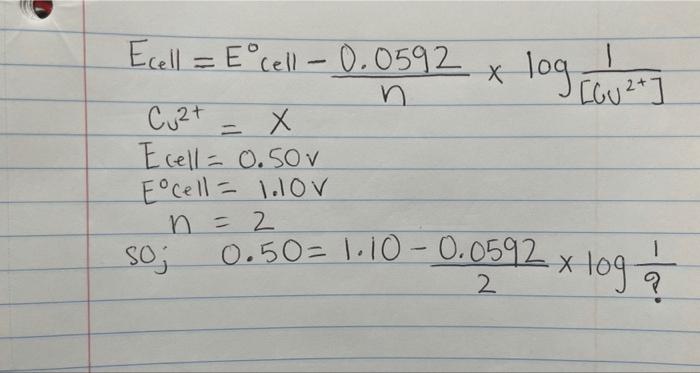 Ecell = E°cell - 0.0592/n x log 1/[Cu²⁺]
Cu²⁺ = X
Ecell = 0.50v
E°cell = 1.10v
n = 2
so; 0.50 = 1.10 - 0.0592/2 x log 1/?